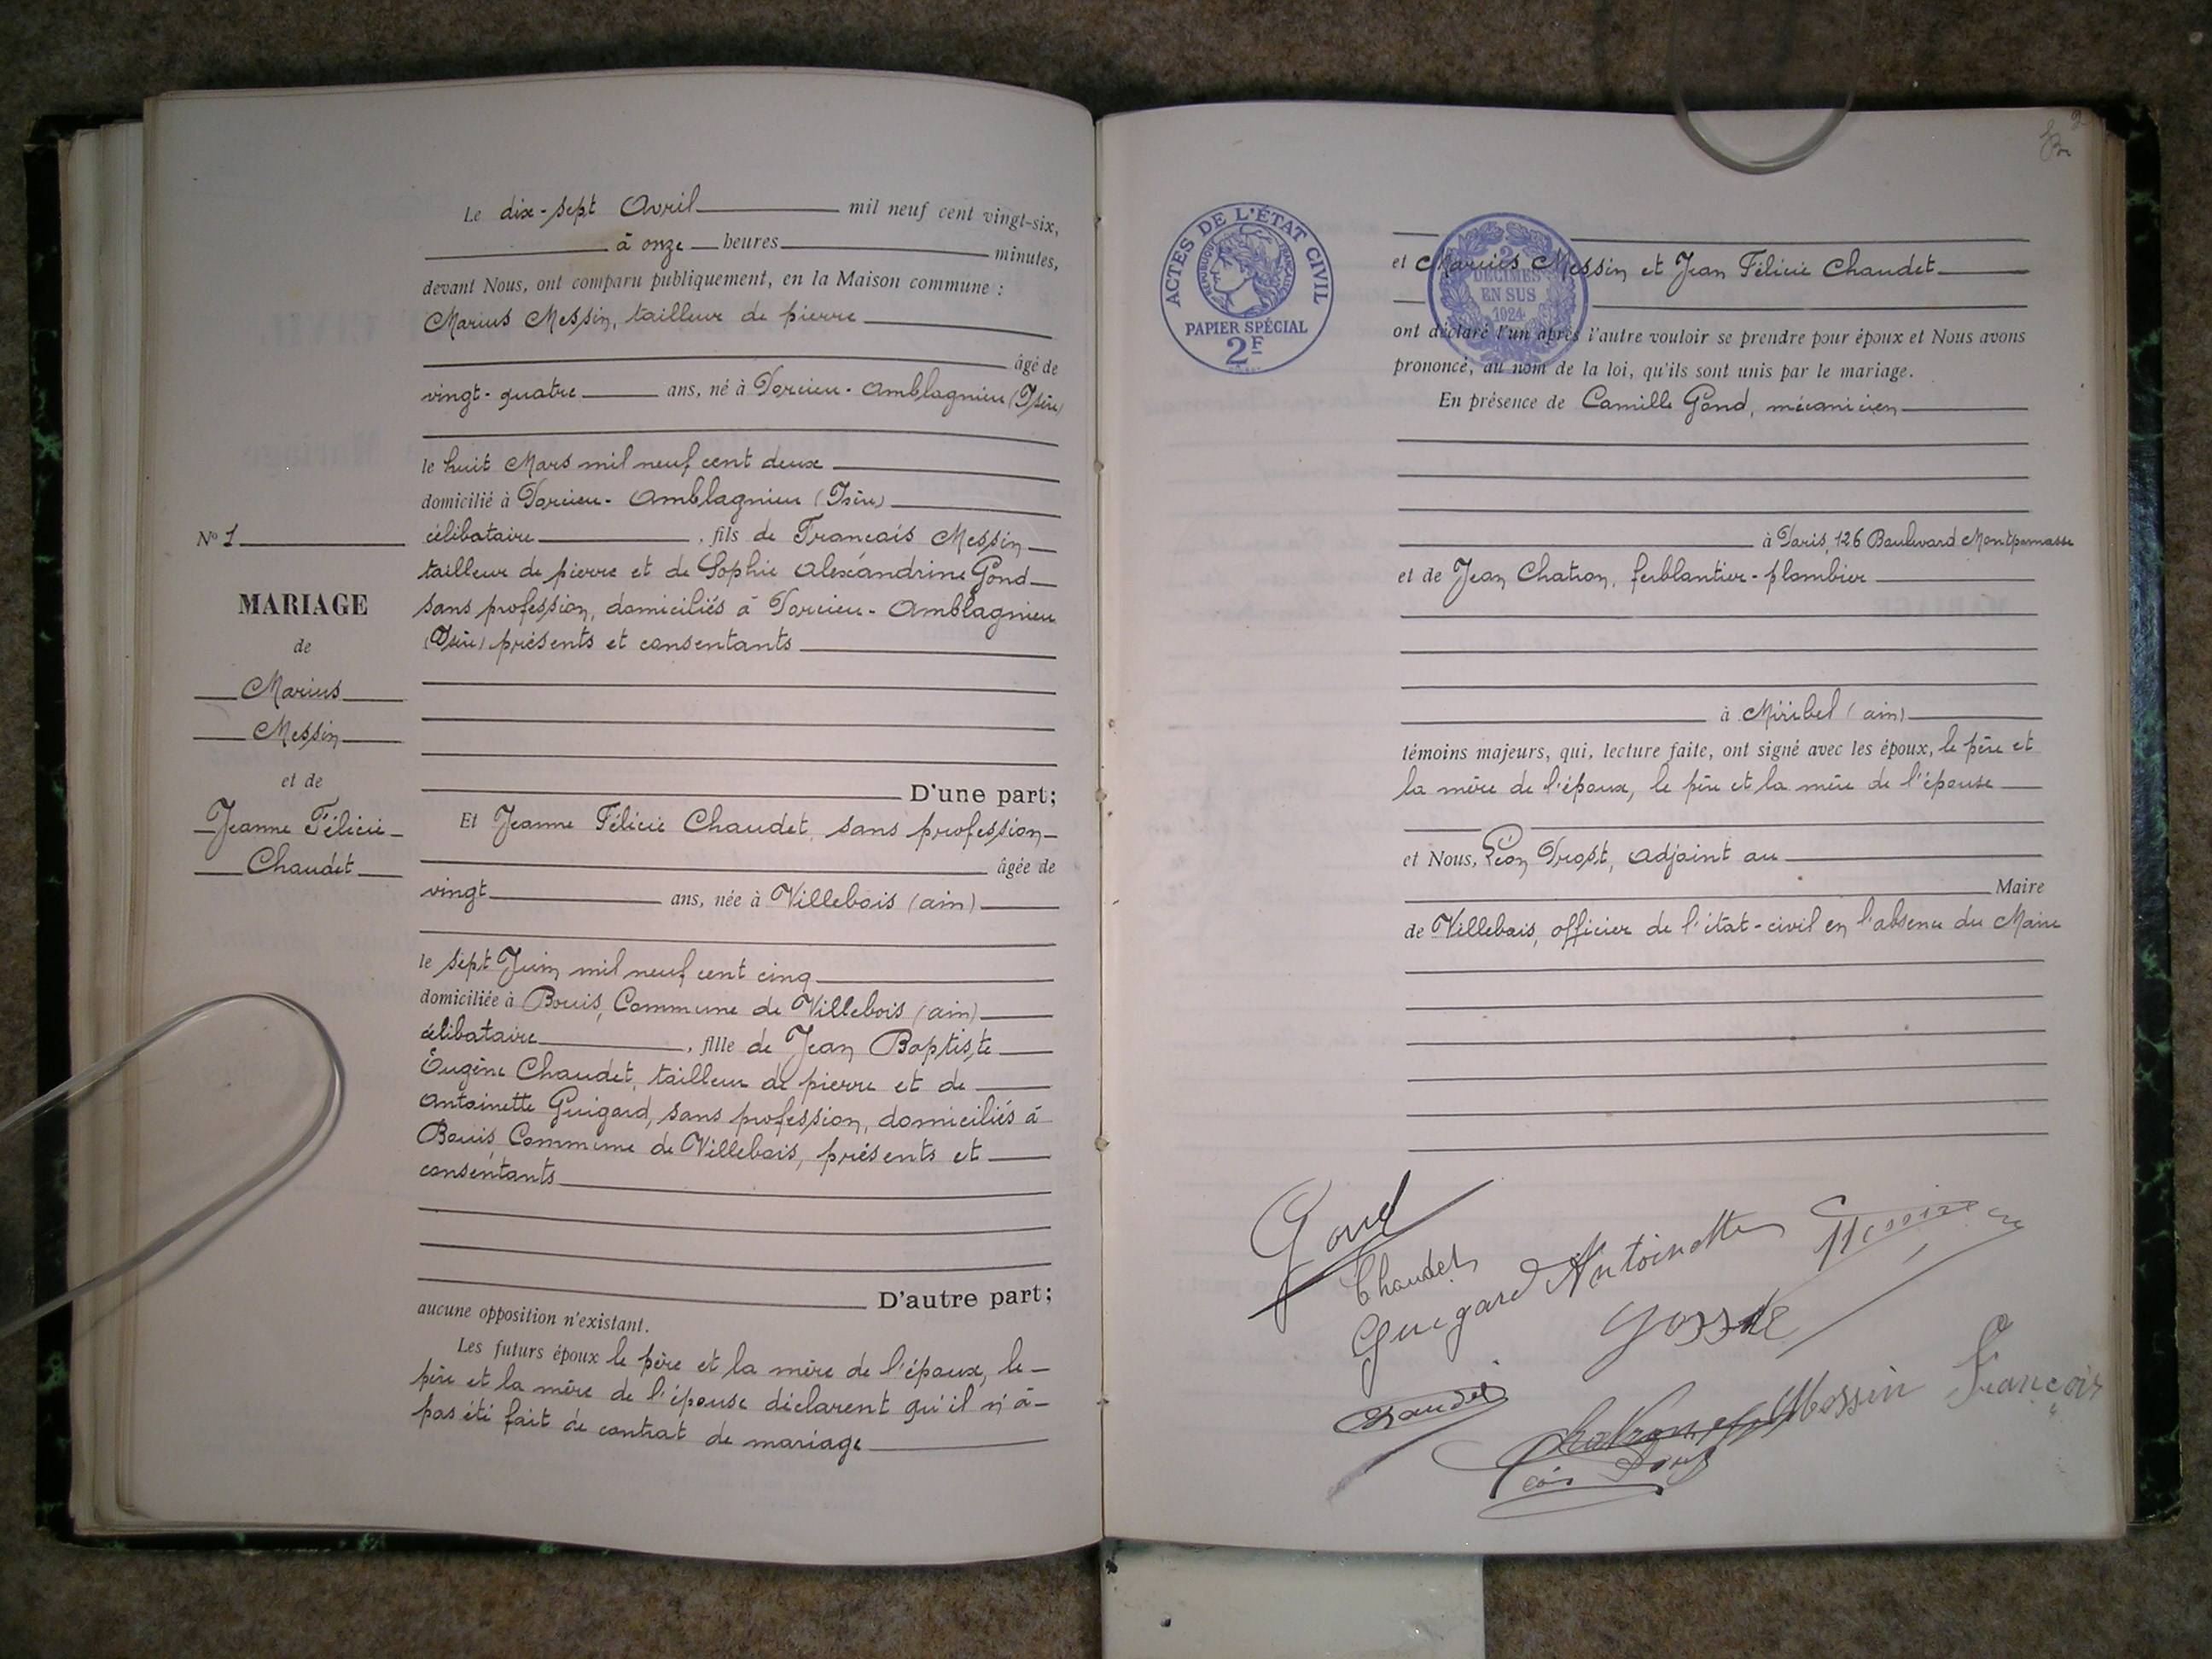 Le dix-sept Avril mil neuf cent vingt-six,
à onze heures minutes,
devant Nous, ont comparu publiquement, en la Maison commune :
Marius Messin, tailleur de pierre
âgé de
vingt-quatre ans, né à Porcieu-Amblagnieu (Isère)
le huit Mars mil neuf cent deux
domicilié à Porcieu-Amblagnieu (Isère)
célibataire, fils de Francais Messin
tailleur de pierre et de Sophie Alexandrine Gond
sans profession, domiciliés à Porcieu-Amblagnieu
(Isère) présents et consentants
D'une part;
N° 1
MARIAGE
de
Marius
Messin
et de
Jeanne Félicie
Chaudet
Et Jeanne Félicie Chaudet, sans profession
âgée de
vingt ans, née à Villebois (ain)
le sept Juin mil neuf cent cinq
domiciliée à Bouis, Commune de Villebois (ain)
célibataire, fille de Jean Baptiste
Eugène Chaudet, tailleur de pierre et de
Antoinette Guigard, sans profession, domiciliés à
Bouis, Commune de Villebois, présents et
consentants
D'autre part;
aucune opposition n'existant.
Les futurs époux le père et la mère de l'époux, le
père et la mère de l'épouse déclarent qu'il n'a
pas été fait de contrat de mariage
ACTES DE L'ÉTAT CIVIL
RÉPUBLIQUE FRANÇAISE
PAPIER SPÉCIAL
2F
2
DÉCIMES
EN SUS
1924
et Marius Messin et Jean Félicie Chaudet
ont déclaré l'un après l'autre vouloir se prendre pour époux et Nous avons
prononcé, au nom de la loi, qu'ils sont unis par le mariage.
En présence de Camille Gond, mécanicien
à Paris, 126 Boulevard Montparnasse
et de Jean Chatron, ferblantier-plombier
à Miribel (ain)
témoins majeurs, qui, lecture faite, ont signé avec les époux, le père et
la mère de l'époux, le père et la mère de l'épouse
et Nous, Léon Trost, adjoint au
Maire
de Villebois, officier de l'état-civil en l'absence du Maire
Gond
Chaudet
Guigard Antoinette
Messin
Chaudet
Chatron
Messin François